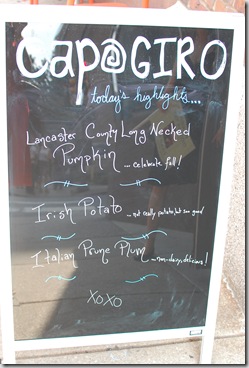 Cap@GIRO
today's highlights....
Lancaster County Long Necked
Pumpkin ... celebrate fall!
Irish Potato ... not really potato, but soo good
Italian Prune Plum ... non-dairy, delicious!
XOXO